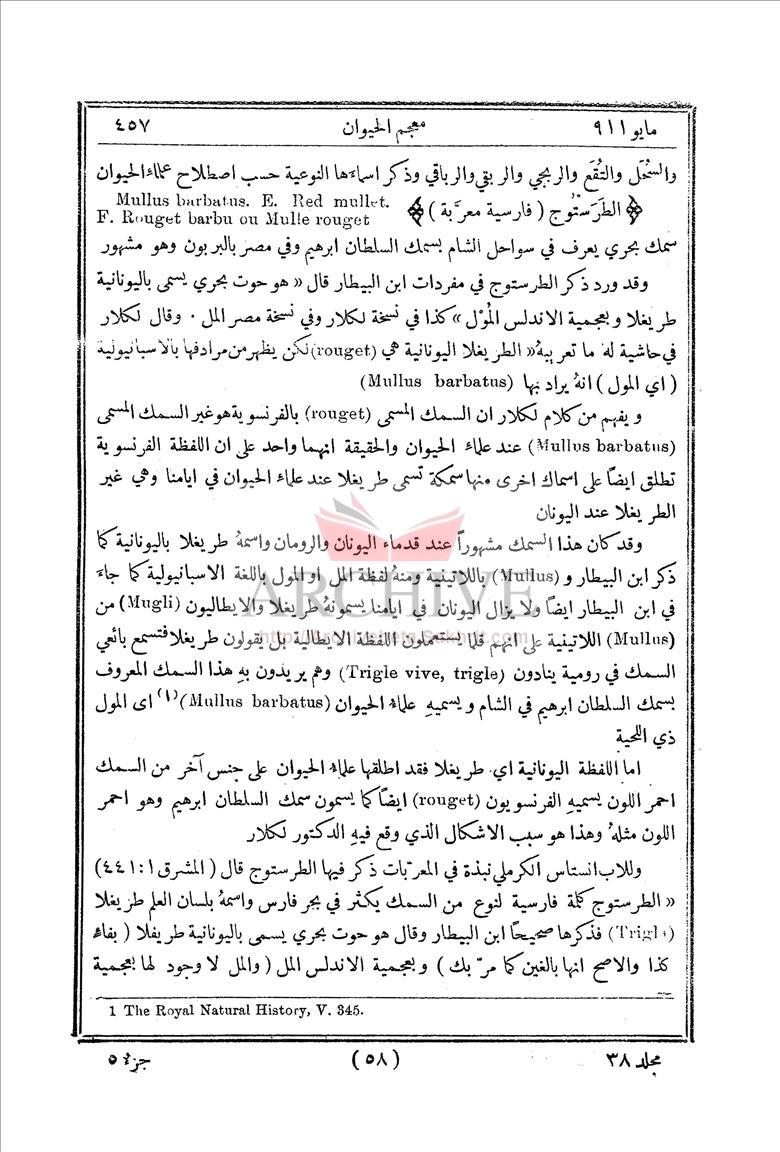 مايو ٩١١ معجم الحيوان ٤٥٧
والسُحَل والتُقَع والربجي والربقي والرباقي وذكر اسماءها النوعية حسب اصطلاح علماء الحيوان
﴿ الطَرَستُوج ( فارسية معرَّبة ) ﴾ Mullus barbatus. E. Red mullet.
F. Rouget barbu ou Mulle rouget
سمك بحري يعرف في سواحل الشام بسمك السلطان ابرهيم وفي مصر بالبربون وهو مشهور
وقد ورد ذكر الطرستوج في مفردات ابن البيطار قال « هو حوت بحري يسمى باليونانية
طريغلا وبعجمية الاندلس المُوْل » كذا في نسخة لكلار وفي نسخة مصر المل . وقال لكلار
في حاشية له ما تعريبهُ « الطريغلا اليونانية هي (rouget) لكن يظهر من مرادفها بالاسبانيولية
( اي المول ) انهُ يراد بها (Mullus barbatus)
ويفهم من كلام لكلار ان السمك المسمى (rouget) بالفرنسوية هو غير السمك المسمى
(Mullus barbatus) عند علماء الحيوان والحقيقة انهما واحد على ان اللفظة الفرنسوية
تطلق ايضاً على اسماك اخرى منها سمكة تسمى طريغلا عند علماء الحيوان في ايامنا وهي غير
الطريغلا عند اليونان
وقد كان هذا السمك مشهوراً عند قدماء اليونان والرومان واسمهُ طريغلا باليونانية كما
ذكر ابن البيطار و (Mullus) باللاتينية ومنهُ لفظة المل او المول باللغة الاسبانيولية كما جاء
في ابن البيطار ايضاً ولا يزال اليونان في ايامنا يسمونهُ طريغلا والايطاليون (Mugli) من
(Mullus) اللاتينية على انهم قلما يستعملون اللفظة الايطالية بل يقولون طريغلا فتسمع بائعي
السمك في رومية ينادون (Trigle vive, trigle) وهم يريدون بهِ هذا السمك المعروف
بسمك السلطان ابرهيم في الشام ويسميهِ علماء الحيوان (Mullus barbatus)(١) اى المول
ذي اللحية
اما اللفظة اليونانية اي طريغلا فقد اطلقها علماء الحيوان على جنس آخر من السمك
احمر اللون يسميهِ الفرنسويون (rouget) ايضاً كما يسمون سمك السلطان ابرهيم وهو احمر
اللون مثلهُ وهذا هو سبب الاشكال الذي وقع فيهِ الدكتور لكلار
وللاب انستاس الكرملي نبذة في المعرَّبات ذكر فيها الطرستوج قال ( المشرق ١ : ٤٤١ )
« الطرستوج كلمة فارسية لنوع من السمك يكثر في بحر فارس واسمهُ بلسان العلم طريغلا
(Trigla) فذكرها صحيحاً ابن البيطار وقال هو حوت بحري يسمى باليونانية طريفلا ( بفاء
كذا والاصح انها بالغين كما مرَّ بك ) وبعجمية الاندلس المل ( والمل لا وجود لها بعجمية
1 The Royal Natural History, V. 345.
مجلد ٣٨ (٥٨) جزء ٥
ARCHIVE